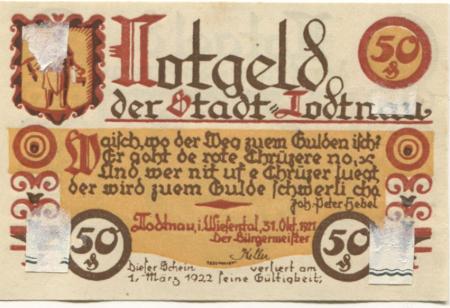 Notgeld
50
₰
der Stadt Todtnau
Waisch, wo der Weg zuem Gulden isch?
Er goht de rote Chrüzere no,
Und, wer nit uf e Chrüzer luegt
der wird zuem Gulde schwerli cho
Joh. Peter Hebel
Todtnau, i. Wiesental, 31. Okt. 1921
Der Bürgermeister
Keller
50
₰
50
₰
Dieser Schein verliert am
1. März 1922 seine Gültigkeit;